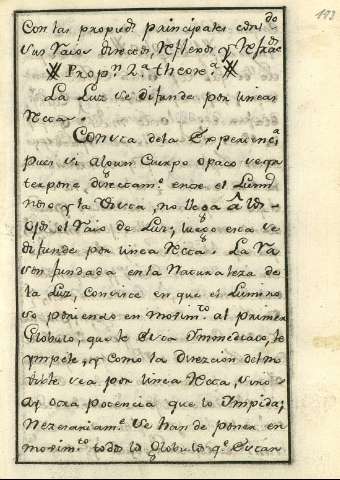 Con las propied.s principales con do
sus Raios directos, reflexos y refrac.os
Prop.n 2.a theor.a
La Luz se difunde por lineas
rectas.
Consta de la Experienc.a
pues si algun Cuerpo opaco se in
terpone directam.e entre el Lumi
noso y la Vista, no llega â los
Ojos el Raio de Luz, luego esta se
difunde por linea recta. La Ra
zon fundada en la Naturaleza de
la Luz, consiste en que el Lumino
so poniendo en movim.to al primer
Globulo, que le esta Immediato, le
ympele, y Como la direzion del mo
bible sea por linea recta, sino
ay otra potencia que lo Impida;
Nezesariam.e se han de poner en
movim.to todos los globulos q.e estan